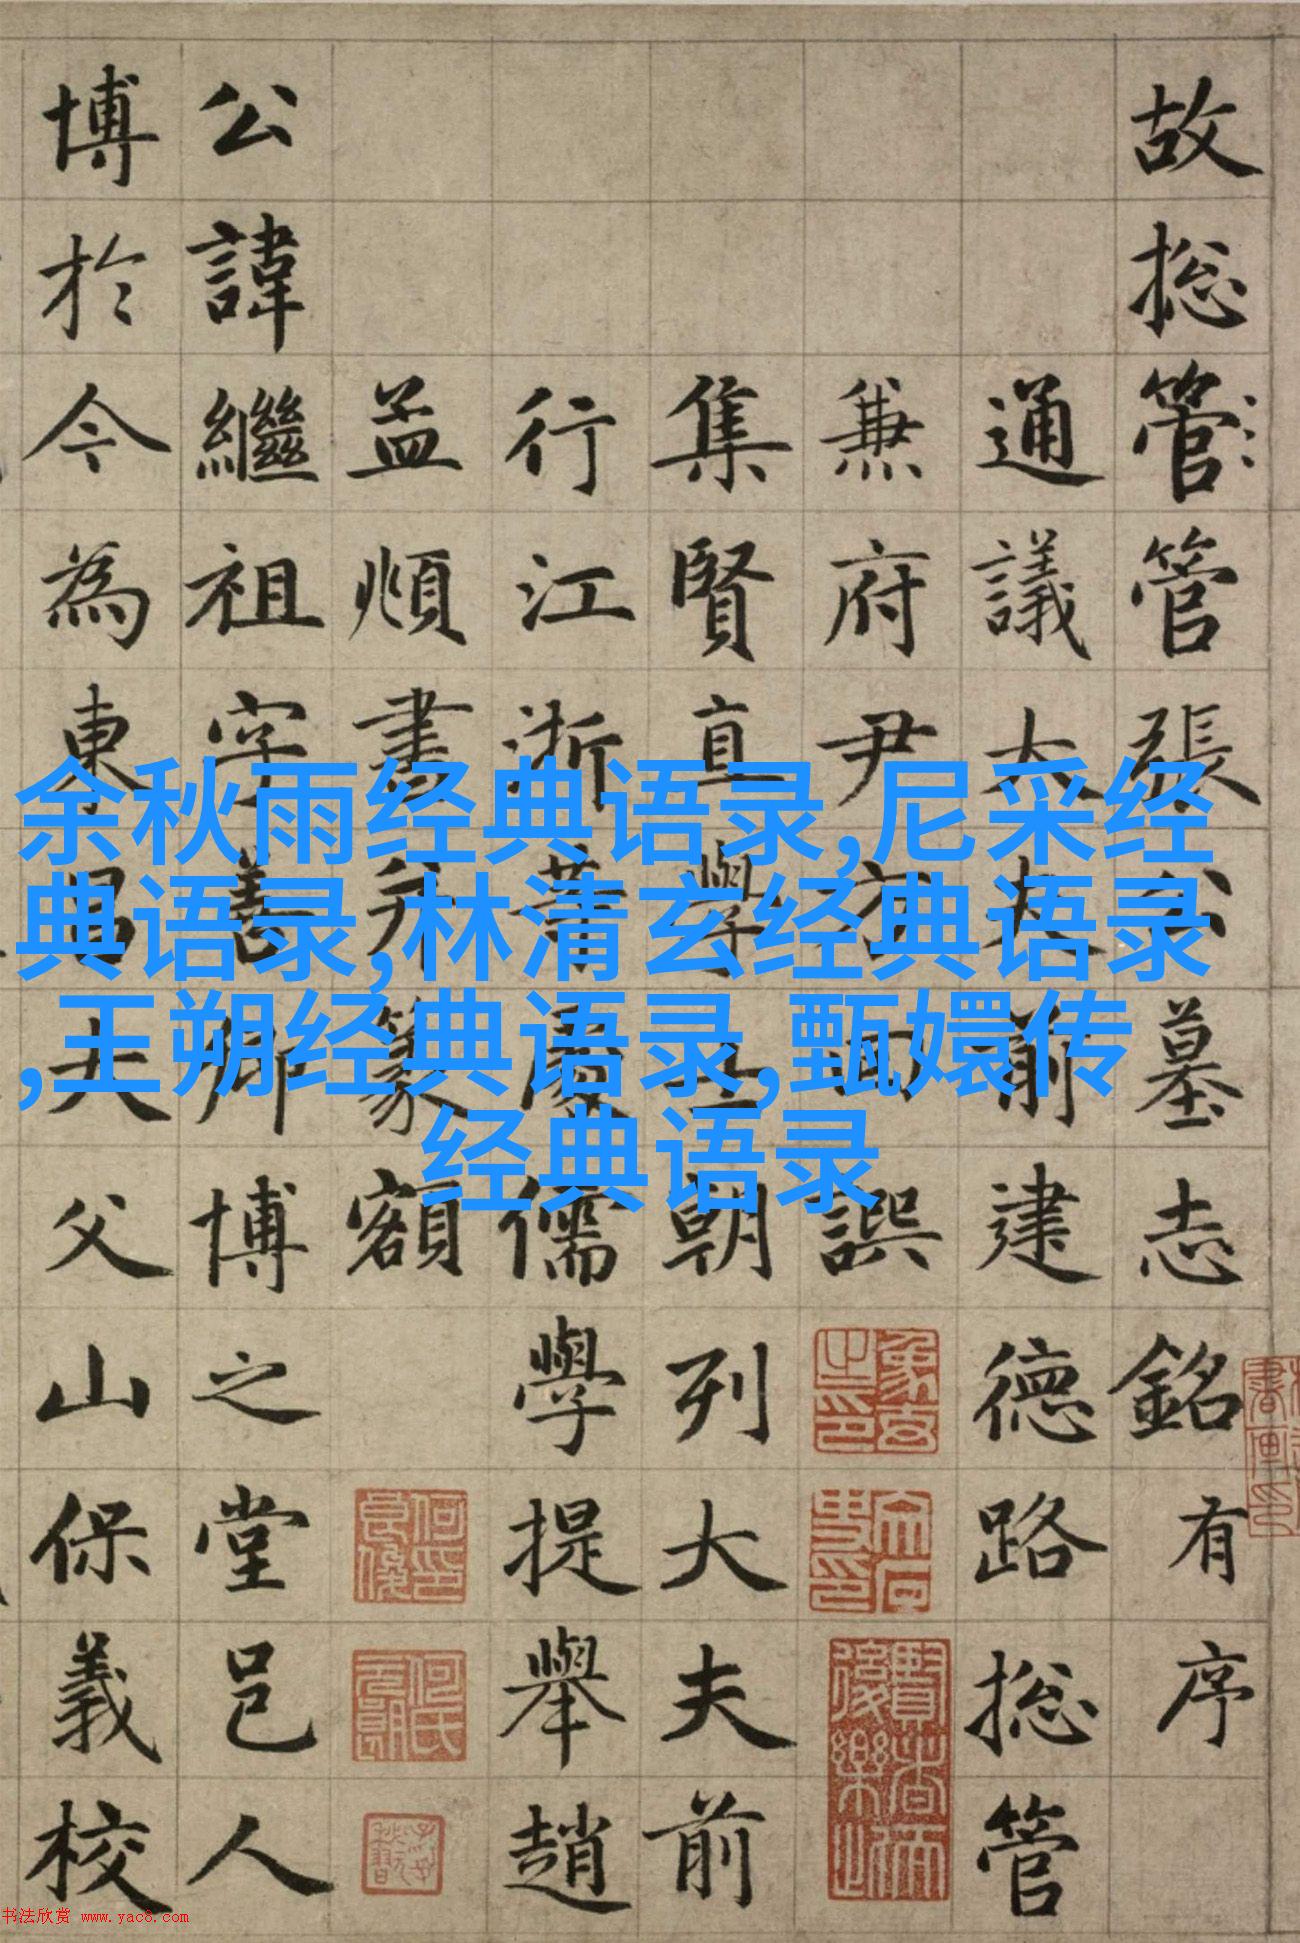 余秋雨经典语录,尼采经
典语录,林清玄经典语录
,王朔经典语录,甄嬛传
经典语录
故揔管管張公墓志銘有序
通議大夫前建德路揔管
兼府尹方回譔
集賢直學士朝列大夫前
行江浙等處儒學提舉趙
孟頫書并篆額
公諱繼祖字善卿博之堂邑人
博於今為東昌大父山保義校
书法欣赏 www.yac8.com